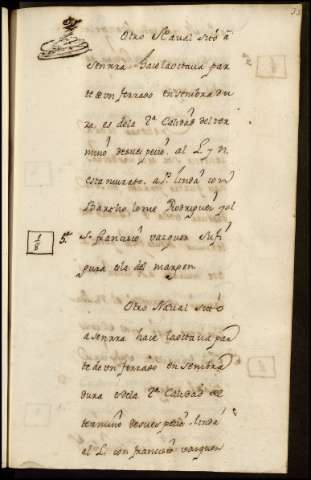 Otro Naval sito â
senrra hace laoctava par
te de un ferrado en sembradu
ra, es dela 2ª Calidad del ter
mino desu espezie al L. y N.
esta murado, a P. linda con
Bartholome Rodriguez gol
1/8 S. francisco vazquez su fi
gura ela del marjen
Otro Naval sito
a senrra hace laoctava par
te de un ferrado en sembra
dura es dela 2ª Calidad del
termino desu espezie, linda
al L. con francisco vazquez